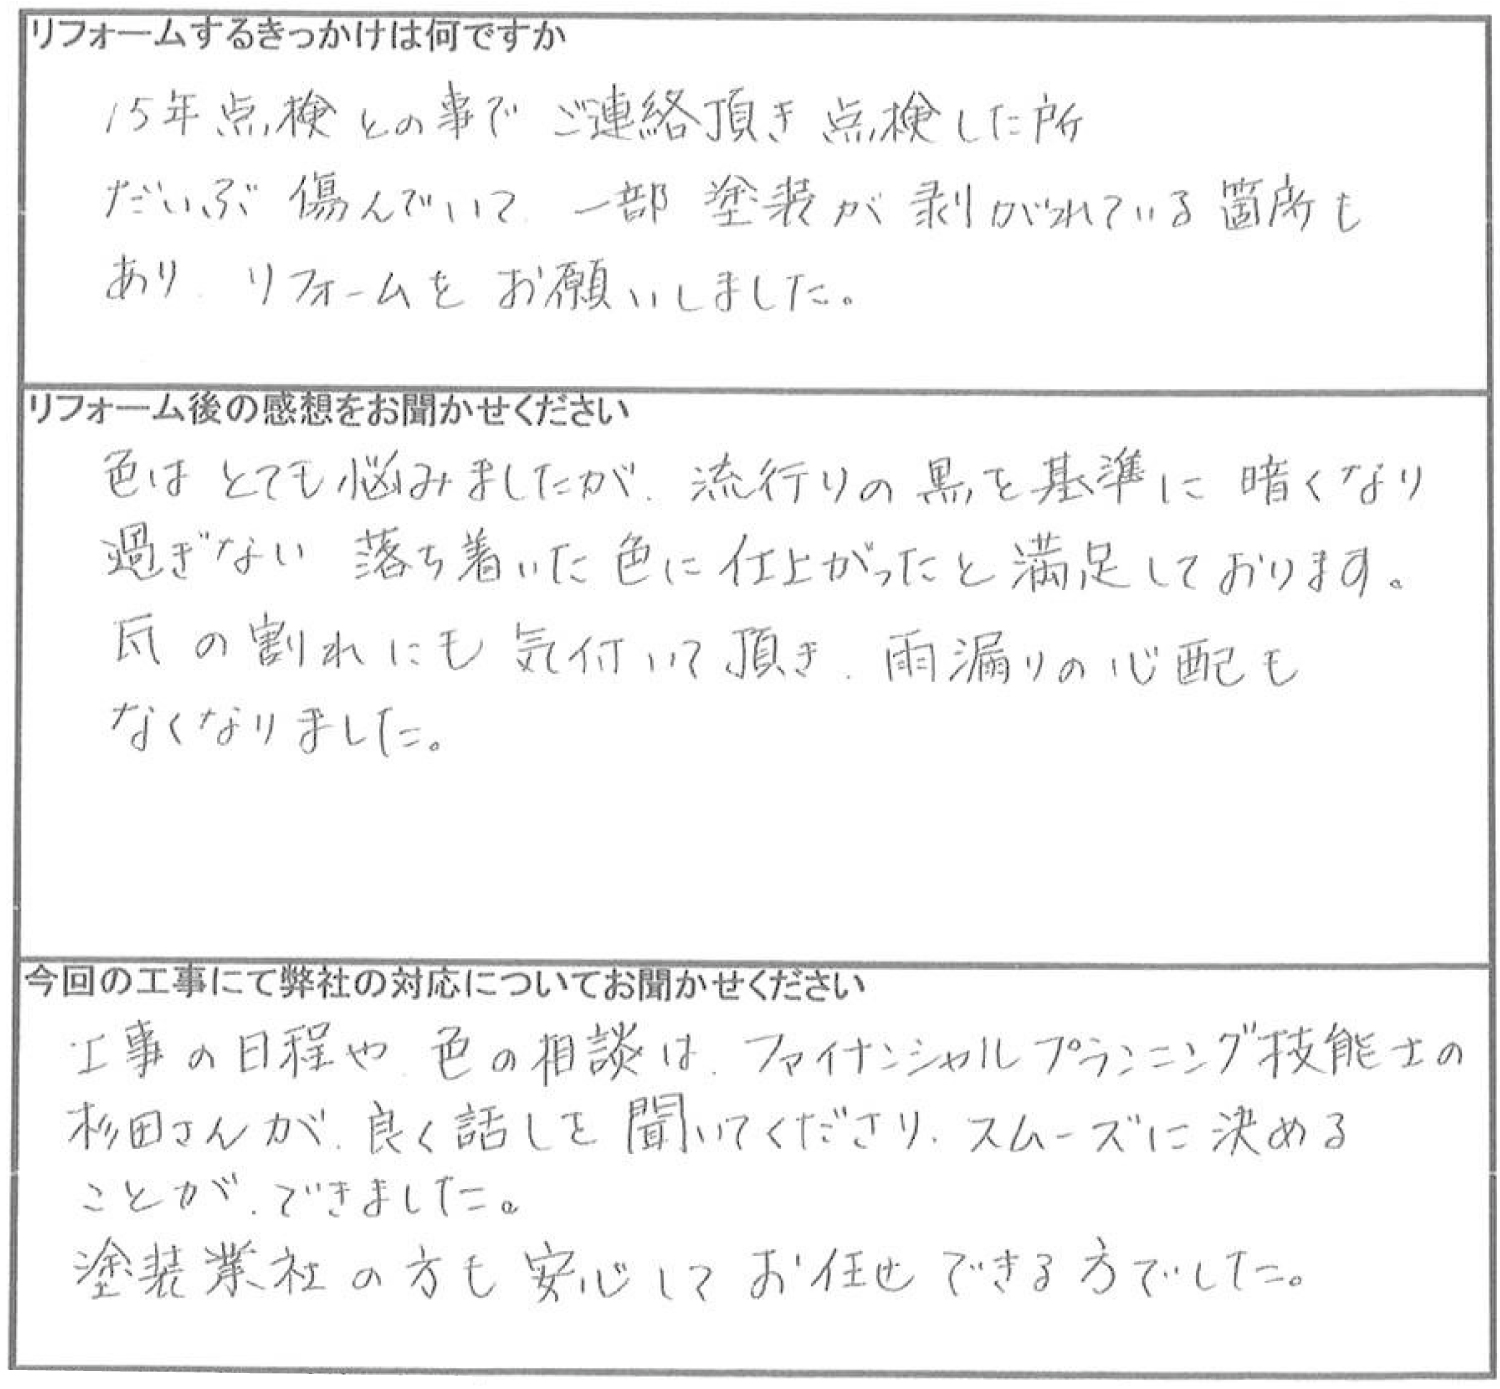 リフォームするきっかけは何ですか
15年点検との事でご連絡頂き点検した所
だいぶ傷んでいて、一部塗装が剥がれている箇所も
あり、リフォームをお願いしました。
リフォーム後の感想をお聞かせください
色はとても悩みましたが、流行りの黒を基準に暗くなり
過ぎない落ち着いた色に仕上がったと満足しております。
瓦の割れにも気付いて頂き、雨漏りの心配も
なくなりました。
今回の工事にて弊社の対応についてお聞かせください
工事の日程や、色の相談は、ファイナンシャルプランニング技能士の
杉田さんが、良く話しを聞いてくださり、スムーズに決める
ことが、できました。
塗装業社の方も安心してお任せできる方でした。